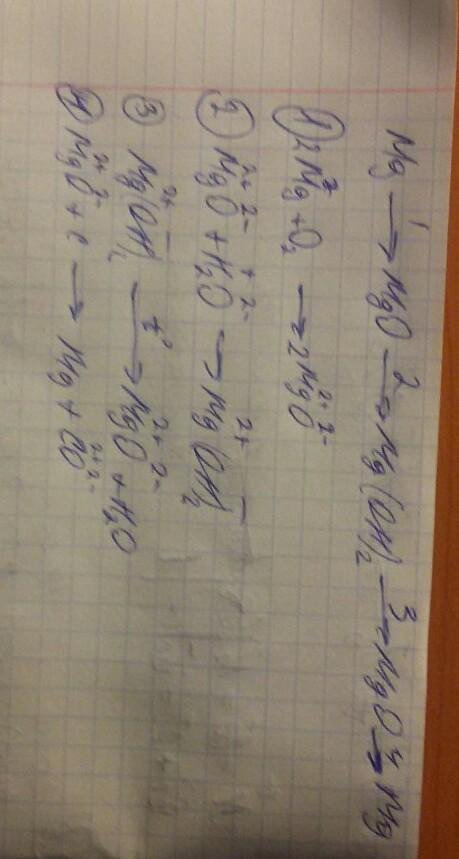 Mg —¹→ MgO —²→ Mg(OH)₂ —³→ MgO —⁴→ Mg
① 2Mg + O₂ → 2Mg²⁺O²⁻
② Mg²⁺O²⁻ + H₂⁺O²⁻ → Mg²⁺(OH)⁻₂
③ Mg²⁺(OH)⁻₂ —t°→ Mg²⁺O²⁻ + H₂O
④ Mg²⁺O²⁻ + C → Mg + C²⁺O²⁻